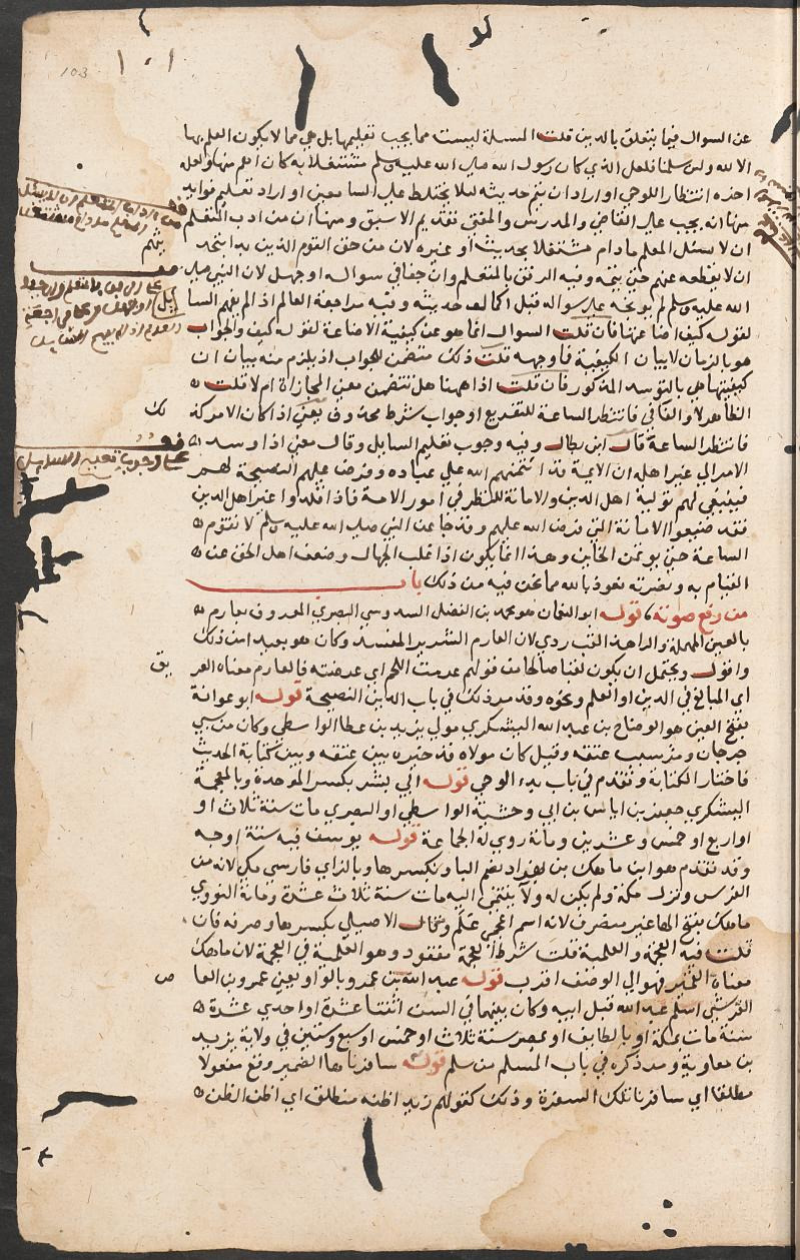 ١٠١
103
عن السوال فيما يتعلق بالدين قلت المسلة ليست مما يجب تعليمها بل هي مما لا يكون العلم بها
الا لله ولين سلمنا فلعل الذي كان رسول الله صلى الله عليه وسلم مشتغلا به كان اهم منها ولعله
اخره انتظارا للوحي او اراد ان يتم حديثه ليلا يختلط على السامعين او اراد تعليم فوايد
منها انه يجب على القاضي والمدرس والمفتي تقديم الاسبق ومنها ان من ادب المتعلم
ان لا يسئل المعلم ما دام مشتغلا بحديث او غيره لان من حق القوم الذين بدا بتحد
يثهم
ان لا يقطعه عنهم حتى يتمه وفيه الرفق بالمتعلم وان جفا في سواله او جهل لان النبي صلى
الله عليه وسلم لم يوبخه على سواله قبل اكمال حديثه وفيه مراجعة العالم اذا لم يفهم السا
يل
لقوله كيف اضاعتها فان قلت السوال انما هو عن كيفية الاضاعة لقوله كيف والجواب
هو بالزمان لا بيان الكيفية فما وجهه قلت ذلك متضمن للجواب اذ يلزم منه بيان ان
كيفيتها هي بالتوسد المذكور فان قلت اذا ههنا هل تتضمن معنى المجازاة ام لا قلت
الظاهر لا والفا في فانتظر الساعة للتفريع او جواب شرط محذوف يعني اذا كان الامر كذ
لك
فانتظر الساعة قال ابن بطال وفيه وجوب تعليم السايل وقال معنى اذا وسد
الامر الى غير اهله ان الايمة قد ائتمنهم الله على عباده وفرض عليهم النصيحة لهم
فينبغي لهم تولية اهل الدين والامانة للنظر في امور الامة فاذا قلدوا غير اهل الدين
فقد ضيعوا الامانة التي فرض الله عليهم وقد جا عن النبي صلى الله عليه وسلم لا تقوم
الساعة حتى يوتمن الخاين وهذا انما يكون اذا غلب الجهال وضعف اهل الحق عن
القيام به ونصرته نعوذ بالله مما نحن فيه من ذلك باب
من رفع صوته قوله ابو النعمان هو محمد بن الفضل السدوسي البصري المعروف بعارم
بالعين المهملة والرا هذا لقب ردي لان العارم الشرير المفسد وكان هو بعيدا من ذلك
واقول ويحتمل ان يكون لقبا صالحا من قولهم عرمت اللحم اي عرضته فالعارم معناه العر
يق
اي المبالغ في الدين او العلم ونحوه وقد مر ذلك في باب الدين النصيحة قوله ابو عوانة
بفتح العين هو الوضاح بن عبد الله اليشكري مولى يزيد بن عطا الواسطي وكان من سبي
جرجان عتقه وقيل كان مولاه قد خيره بين عتقه وبين كتابة الحديث
فاختار الكتابة وتقدم في باب بدء الوحي قوله ابي بشر بكسر الموحدة وبالمعجمة
اليشكري جعفر بن اياس بن ابي وحشية الواسطي او البصري مات سنة ثلاث او
او اربع او خمس وعشرين ومائة روى له الجماعة قوله يوسف فيه ستة اوجه
وقد تقدم هو ابن ماهك بن بهزاد بضم البا وبكسرها وبالزاي فارسي مكي لانه من
الفرس ونزل مكة ولم يكن له ولا ينتمي اليه مات سنة ثلاث عشرة ومائة النووي
ماهك بفتح الها غير منصرف لانه اسم اعجمي علم وقال الاصيلي بكسرها وصرفه فان
قلت فيه العجمة والعلمية قلت شرط العجمة مفقود وهو العلمية في العجمة لان ماهك
معناه القمير فهو الى الوصف اقرب قوله عبد الله بن عمرو بالواو يعني عمرو بن العا
ص
القرشي اسلم عبد الله قبل ابيه وكان بينهما في السن اثنتا عشرة او احدى عشرة
سنة مات بمكة او بالطايف او بمصر سنة ثلاث او خمس او سبع وستين في ولاية يزيد
بن معاوية ومر ذكره في باب المسلم من سلم قوله سافرناها الضمير وقع مفعولا
مطلقا اي سافرنا تلك السفرة وذلك كقولهم زيد اظنه منطلق اي اظن الظن